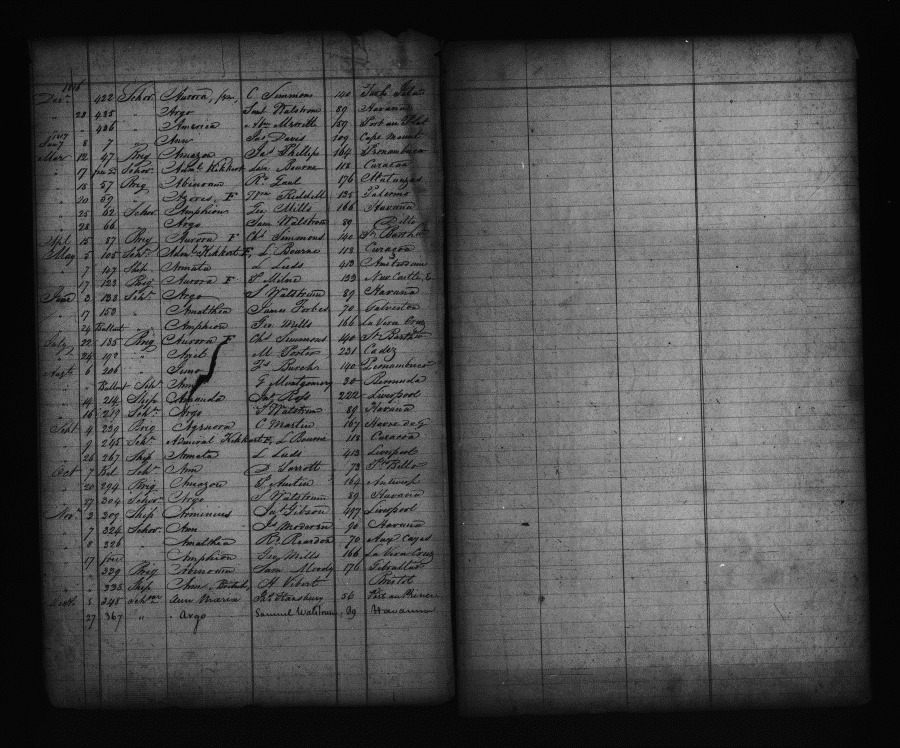 1816
422 Schor. Aurora, C. Simmons 140
28 435 " Argo Saml Walstrom 89 Havana
" 436 " America 159 Port au
1817
Jany 8 7 " Ann Jas Davis 109 Cape
Mar 12 47 Brig Amazon Jas Phillips 164 Pernambuco
" 17 Schor. Adml Kikkert Lau. Bourne 118 Curacoa
" 18 57 Brig Abineau 176 Matanzas
" 20 59 " Azores, F Wm Riddell 135 Palermo
" 25 62 Schor Amphion Geo Mills 166 Havana
" 28 66 " Argo Sam Walstrom 89 Ditto
Apl 15 87 Brig Aurora F Chs Simmons 140 St Barths
May 5 105 Schr Adml Kikkert F, L Bourne 118 Curaçoa
" 7 147 Ship Armata L Luds 413 Amsterdam
" 17 123 Brig Aurora F S Milne 133 New Castle,
June 3 138 Schr Argo S Walstrum 89 Havana
" 17 150 " Amalthea James Forbes 70 Galveston
" 24 Ballast " Amphion Geo Mills 166 La Vera Cruz
July 22 185 Brig Aurora F Chs Simmons 140 St Barths
" 24 192 " M. Porter 231 Cadiz
Augt 6 206 " Juno Burch 140 Pernambuco
" Ballast Schr Ann G Montgomery 30 Bermuda
" 14 214 Ship Amanda Jas Ross 222 Liverpool
" 16 219 Schr Argo S Walstrum 89 Havana
Sept 4 239 Brig C Martin 167 Havre de G
" 9 245 Schr Admiral Kikkert F, L Bourne 118 Curacoa
" 26 267 Ship Armata L Luds 413 Liverpool
Oct 7 Schr Ann 73 Pto Bello
" 20 294 Brig Amazon S Austin 164 Antwerp
" 27 304 Schor Argo S Walstrum 89 Havana
Novr 2 309 Ship Arminius Jas Gibson 497 Liverpool
" 7 324 Schor. Ann Js Moderen 90 Havana
" 8 326 " Amalthea R. Reardon 70 Aux Cayes
" 17 " Amphion Geo Mills 166 La Vera Cruz
" 339 Brig Sam Moody 176 Gibraltar
" 335 Ship Ann, British, H. Vibert Bristol
Decr 5 345 Schr Ann Maria Stansbury 56 Port au Prince
27 367 " Argo Samuel Walstrum 89 Havanna